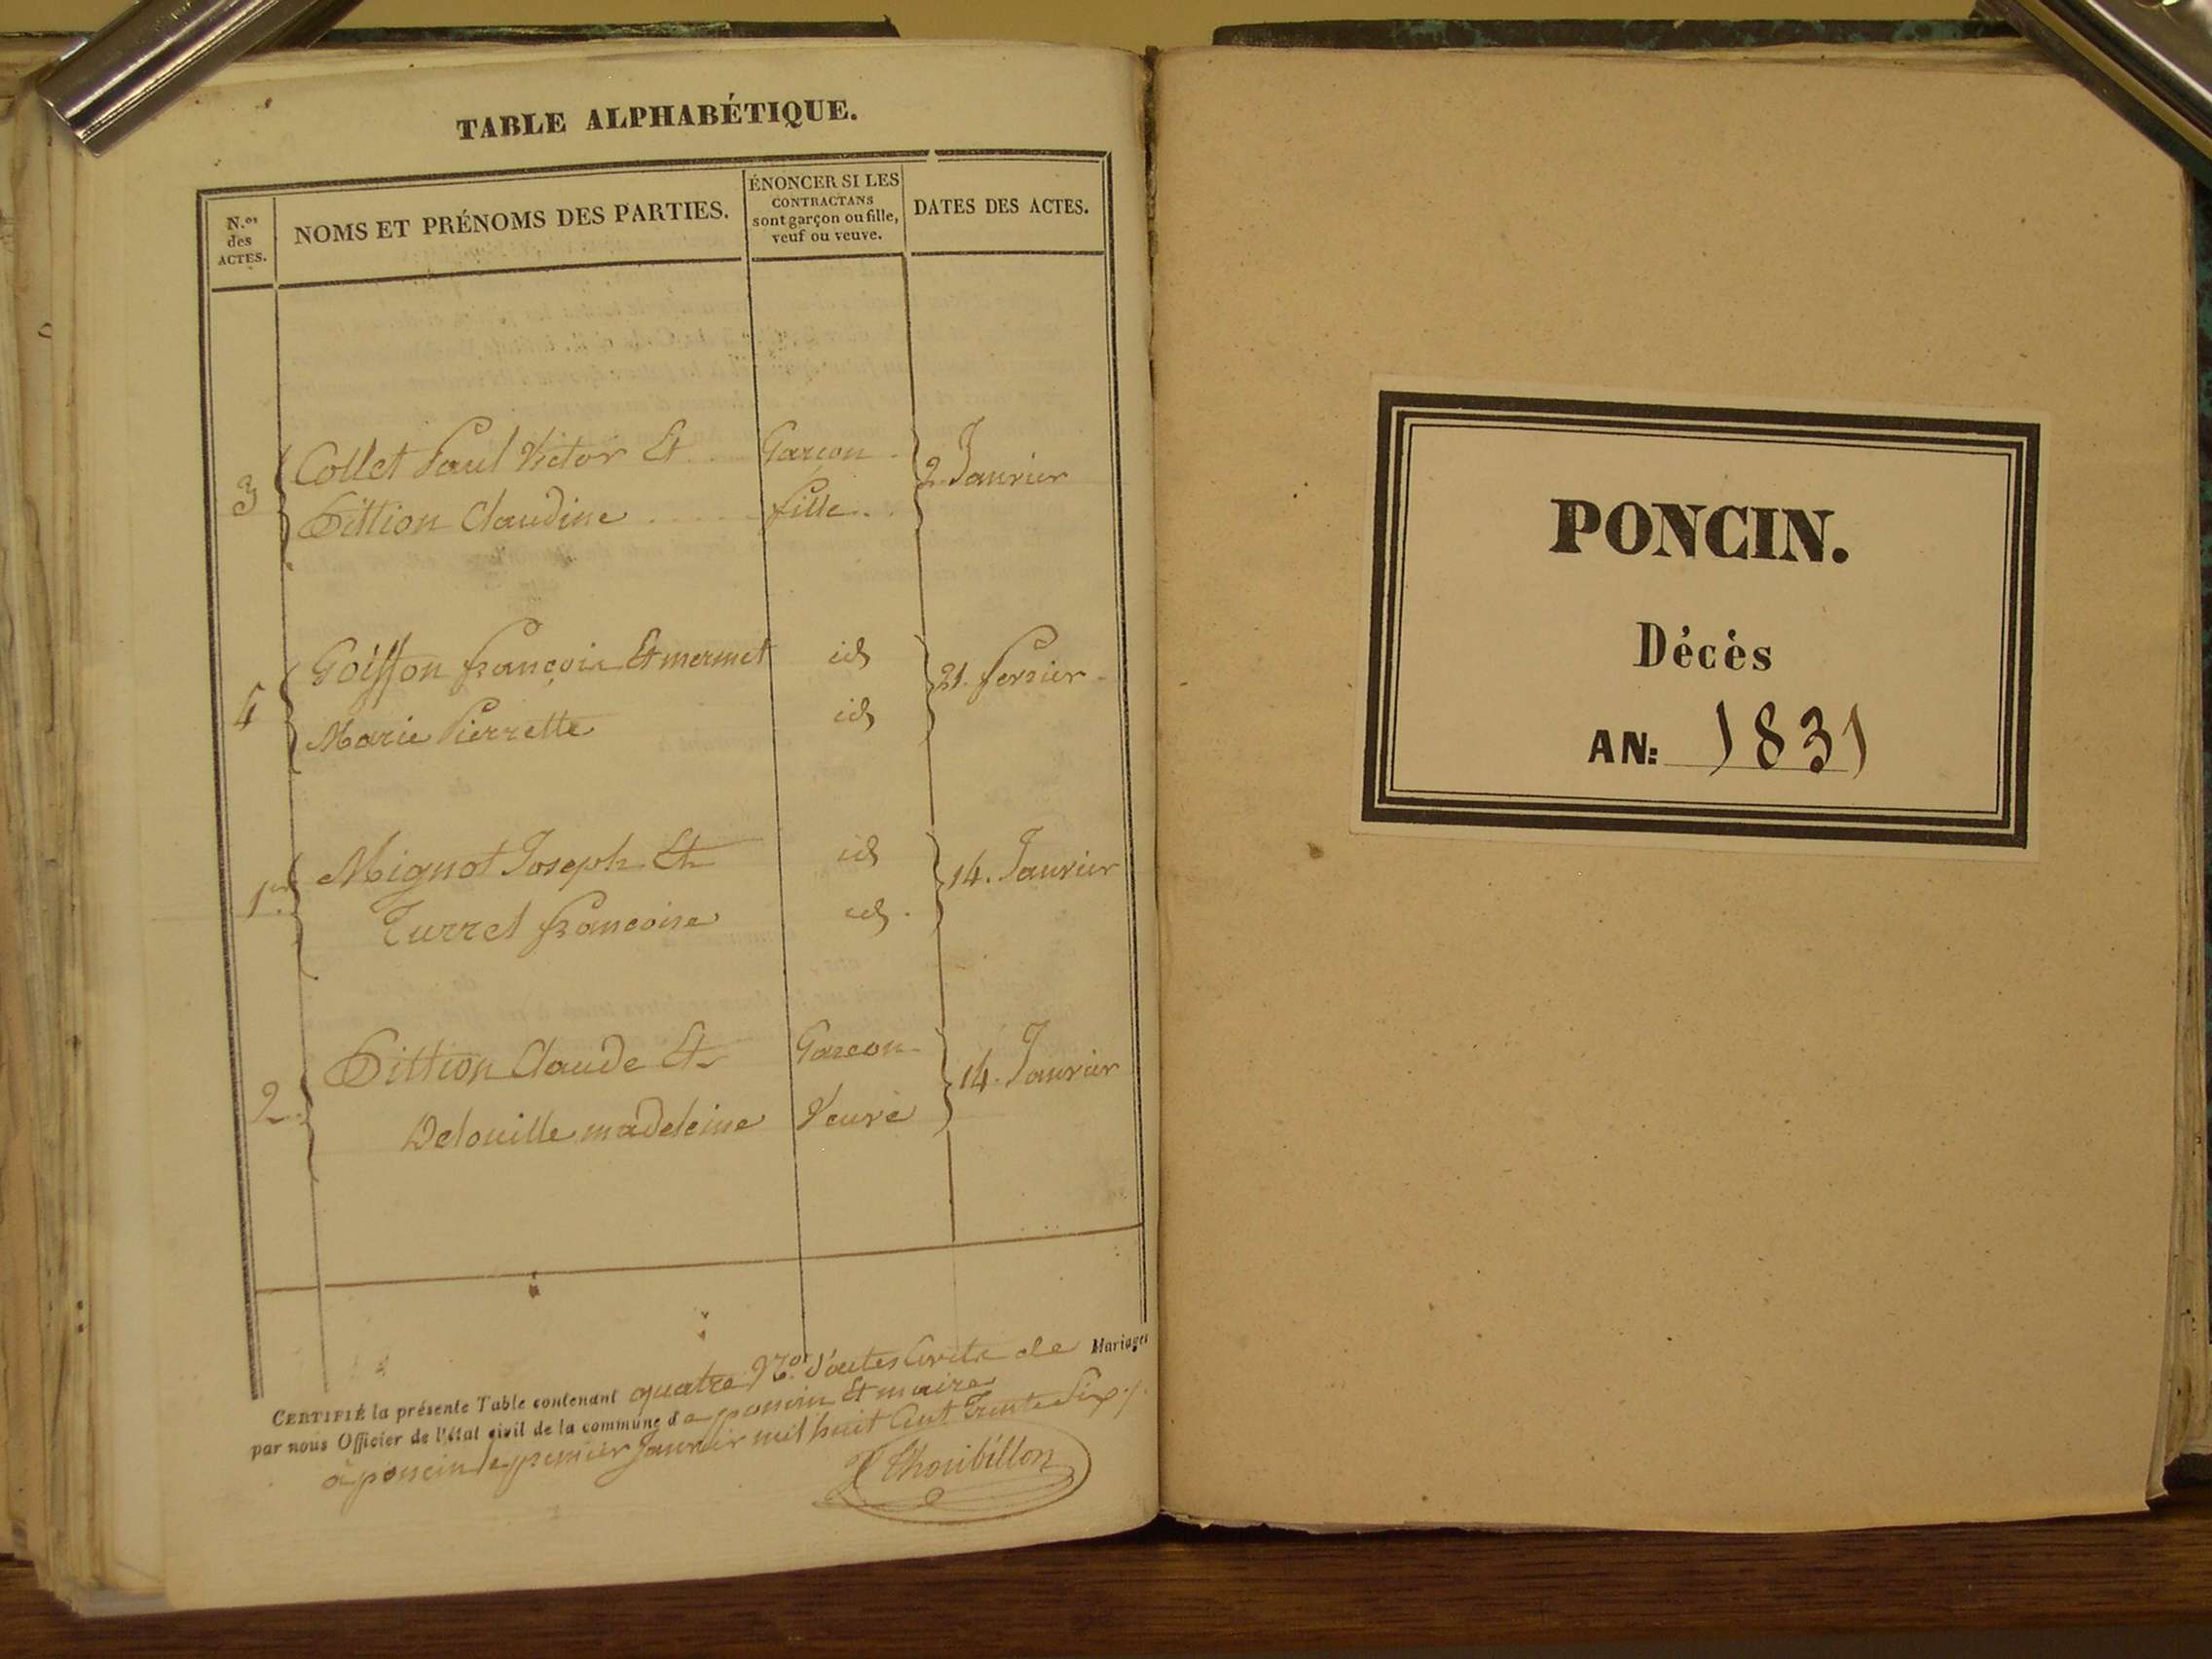 TABLE ALPHABÉTIQUE.
N.os
des
ACTES.
NOMS ET PRÉNOMS DES PARTIES.
ÉNONCER SI LES
CONTRACTANS
sont garçon ou fille,
veuf ou veuve.
DATES DES ACTES.
3 Collet Paul Victor Et Garçon 2 Janvier
Dittion Claudine fille
4 Goiffon françois Et mermet id 21. fevrier
Marie Pierrette id
1er Mignot Joseph Et id 14. Janvier
Turrel francoise id
2 Dittion Claude Et Garcon 14. Janvier
Delouille madeleine Veuve
CERTIFIÉ la présente Table contenant quatre No. d'actes de Mariages
par nous Officier de l'état civil de la commune de poncin Et maire
à poncin le premier Janvier mil huit Cent Trente Six
Thoubillon
PONCIN.
Décès
AN: 1831